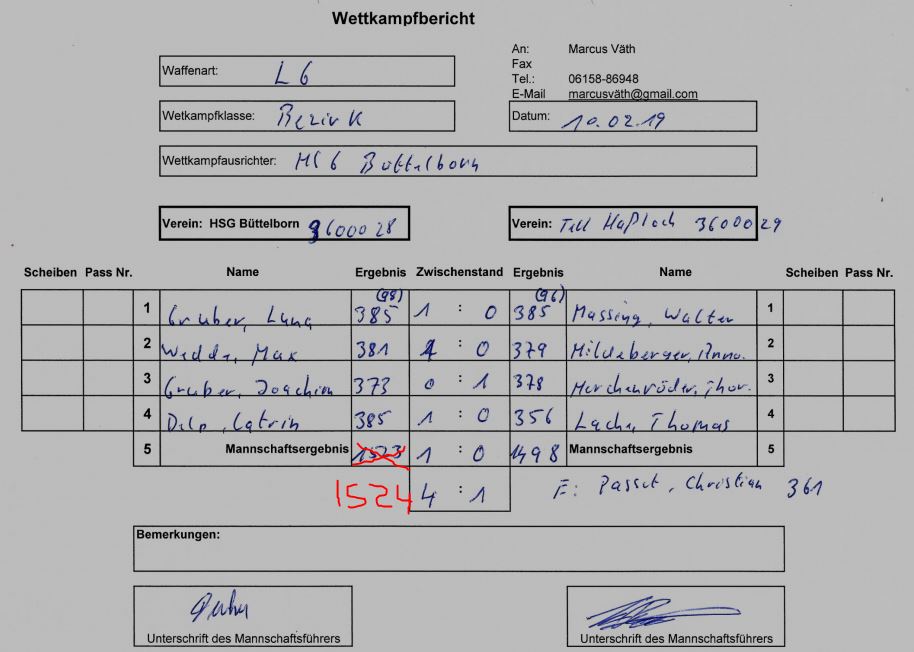 Wettkampfbericht
An: Marcus Väth
Fax
Tel.: 06158-86948
E-Mail marcusväth@gmail.com
Waffenart: LG
Wettkampfklasse: Bezirk
Datum: 10.02.19
Wettkampfausrichter: HSG Büttelborn
Verein: HSG Büttelborn 3600028
Verein: Tell Haßloch 3600029
Scheiben Pass Nr. Name Ergebnis Zwischenstand Ergebnis Name Scheiben Pass Nr.
(98) (96)
1 Gruber, Luna 385 1 : 0 385 Massing, Walter 1
2 Wedde, Max 381 1 : 0 379 Hildeberger, Anna. 2
3 Gruber, Joachim 373 0 : 1 378 Merchenröder, Thor. 3
4 Delp, Catrin 385 1 : 0 356 Lach, Thomas 4
5 Mannschaftsergebnis 1523 1 : 0 1498 Mannschaftsergebnis 5
1524 4 : 1 E: Passet, Christian 361
Bemerkungen:
Unterschrift des Mannschaftsführers
Unterschrift des Mannschaftsführers